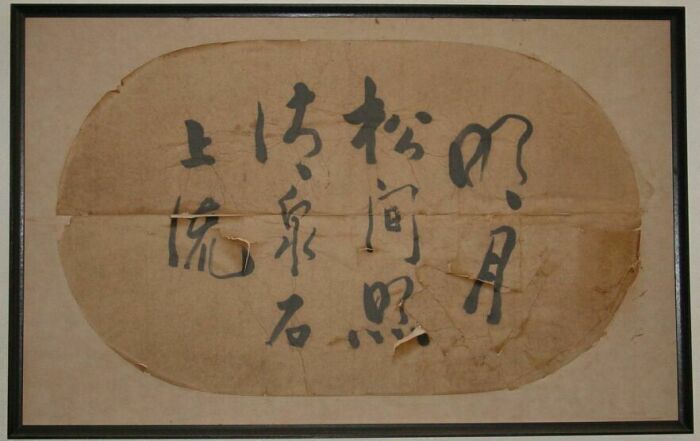 明月
松间照
清泉石
上流